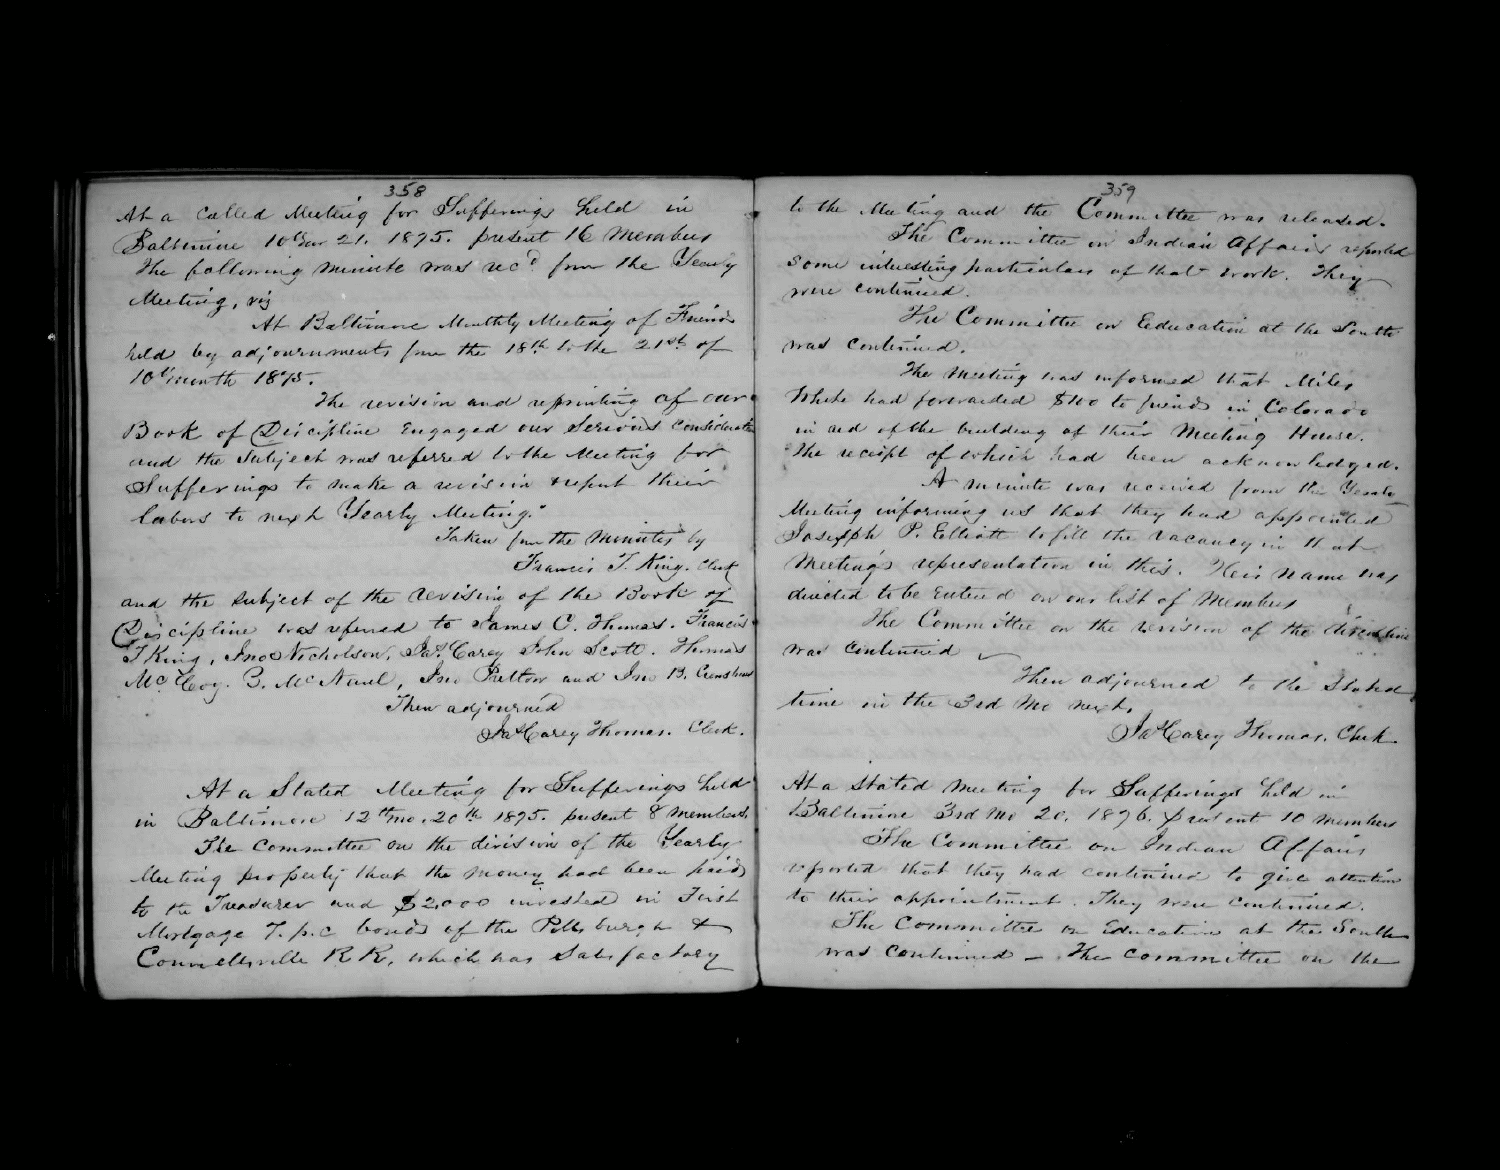 358
At a Called Meeting for Sufferings held in
Baltimore 10th mo 21. 1875. present 16 members
The following minute was rec'd from the Yearly
Meeting, viz
At Baltimore Monthly Meeting of Friends
held by adjournments from the 18th to the 21st of
10th month 1875.
The revision and reprinting of our
Book of Discipline Engaged our Serious Consideration
and the Subject was referred to the Meeting for
Sufferings to make a revision & report their
labors to next Yearly Meeting."
Taken from the Minutes by
Francis T. King. Clerk
and the subject of the revision of the Book of
Discipline was referred to James C. Thomas. Francis
T King, Jno Nicholson, Jas Carey John Scott. Thomas
McCoy. B. McNaul, Jno Pretlow and Jno B. Crenshaw
Then adjourned
Jas Carey Thomas. Clerk.
At a Stated Meeting for Sufferings held
in Baltimore 12th mo. 20th 1875. present 8 members,
The Committee on the division of the Yearly
Meeting property that the money had been paid
to the Treasurer and $2,000 invested in First
Mortgage 7. p.c bonds of the Pittsburgh &
Connellsville R R, which was Satisfactory
359
to the Meeting and the Committee was released.
The Committee on Indian Affairs reported
some interesting particulars of that work. They
were continued.
The Committee on Eeducation at the South
was continued.
The Meeting was informed that Miles
White had forwarded $100 to friends in Colorado
in aid of the building of their Meeting House.
The receipt of which had been acknowledged.
A minute was received from the Yearly
Meeting informing us that they had appointed
Joseph P. Elliott to fill the vacancy in that
Meeting's representation in this. His name was
directed to be Entered on our list of Members
The Committee on the revision of the discipline
was continued
Then adjourned to the Stated
time in the 3rd Mo next.
Jas Carey Thomas. Clerk
At a Stated Meeting for Sufferings held in
Baltimore 3rd Mo 20. 1876. present 10 members
The Committee on Indian Affairs
reported that they had continued to give attention
to their appointment. They were continued.
The Committee on Education at the South
was continued – The committee on the